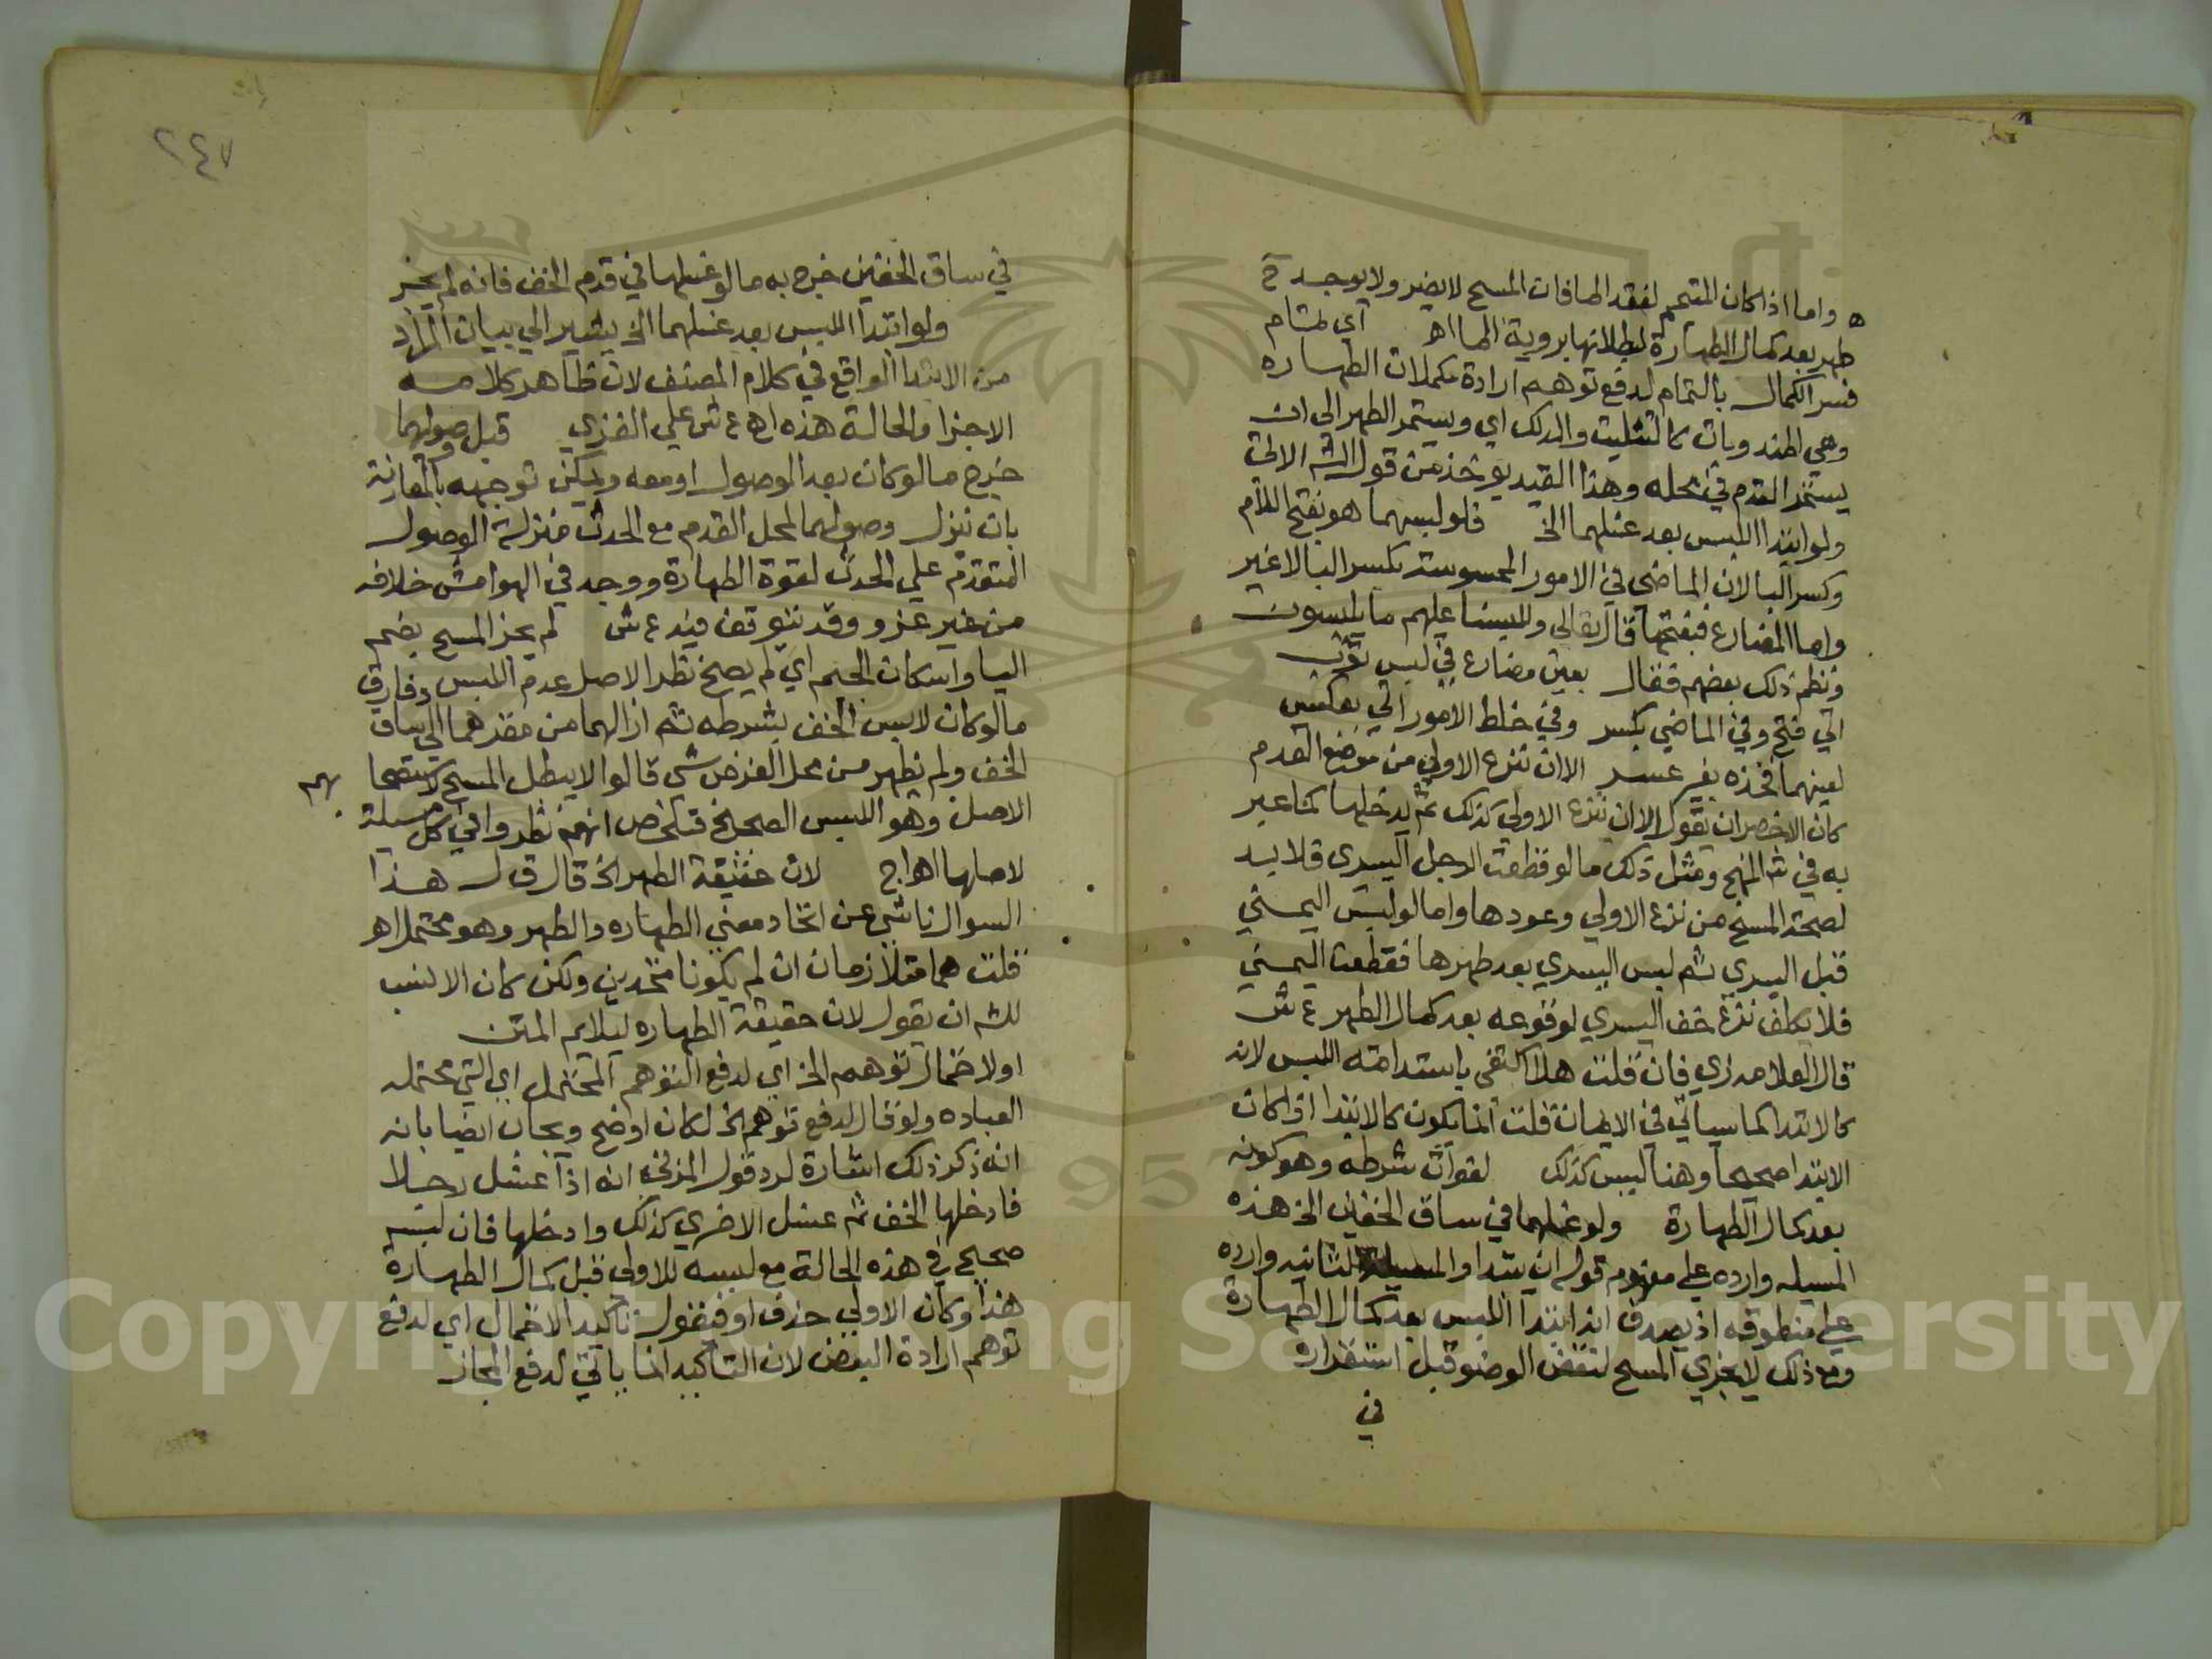 واما اذا كان المتيمم لفقد الما فان المسح لا يضر ولا يوجد ح
طهر بعد كمال الطهارة لبطلانها بروية الما اهـ اي لتمام
فسر الكمال بالتمام لدفع توهم ارادة مكملات الطهاره
وهي المندوبات كالتثليث والدلك اي ويستمر الطهر الي ان
يستقر القدم في محله وهذا القيد يوخذ من قول الش الاتي
ولو ابتدا اللبس بعد غسلهما الخ فلو لبسهما هو بفتح اللام
وكسر البا لان الماضي في الامور المحسوسة بكسر البا لا غير
واما المضارع فبفتحها قال تعالي وللبسنا عليهم ما يلبسون
ونظم ذلك بعضهم فقال بعين مضارع في لبس ثوب
اتي فتح وفي الماضي بكسر وفي خلط الامور اتي بعكس
لعينهما فخذه بغير عسر الا ان نزع الاولي من موضع القدم
كان الاخصر ان يقول الا ان نزع الاولي كذلك ثم يدخلها كما عبر
به في ش المنهج ومثل ذلك ما لو قطعت الرجل اليسري فلا بد
لصحة المسح من نزع الاولي وعودها واما لو لبس اليمني
قبل اليسري ثم لبس اليسري بعد طهرها فقطعت اليمني
فلا يكلف نزع خف اليسري لوقوعه بعد كمال الطهر ع ش
قال العلامة زي فان قلت هلا اكتفي باستدامته اللبس لانه
كالابتدا كما سياتي في الايمان قلت انما يكون كالابتدا اذا كان
الابتدا صحيحا وهنا ليس كذلك لفوات شرطه وهو كونه
بعد كمال الطهارة ولو غسلهما في ساق الخفين الخ هذه
المسيله وارده علي مفهوم قوله ان يبتدا والمسيلة الثانيه وارده
علي منطوقه اذ يصدق انه ابتدا اللبس بعد كمال الطهارة
ومع ذلك لا يجزي المسح لنقض الوضو قبل استقراره
في
٢٤٧
في ساق الخفين خرج به ما لو غسلها في قدم الخف فانه لم يجز
ولو ابتدا اللبس بعد غسلهما الخ يشير الي بيان المراد
من الابتدا الواقع في كلام المصنف لان ظاهر كلامه
الاجزا والحالة هذه اهـ ع ش علي الغزي قبل وصولهما
خرج ما لو كان بعد الوصول او معه ويمكن توجيهه بالمقارنة
بان ننزل وصولهما لمحل القدم مع الحدث منزلة الوصول
المتقدم علي الحدث لقوة الطهارة ووجد في الهوامش خلافه
من غير عزو وقد نتوقف فيه ع ش لم يجز المسح بضم
اليا واسكان الجيم اي لم يصح نظر الاصل عدم اللبس وفارق
ما لو كان لابس الخف بشرطه ثم ازالهما من مقرهما الي ساق
الخف ولم يظهر من محل الفرض شي قالوا لا يبطل المسح لاستصحا
الاصل وهو اللبس الصحيح فتلخص انهم نظروا في كل مسيلة
لاصلها اهـ اج لان حقيقة الطهر الخ قال ق ل هذا
السوال ناشي عن اتحاد معني الطهاره والطهر وهو محتمل اهـ
قلت هما متلازمان ان لم يكونا متحدين ولكن كان الانسب
للش ان يقول لان حقيقة الطهاره ليلايم المتن
او لاحتمال توهم الخ اي لدفع التوهم المحتمل اي التي محتمله
العباره ولو قال لدفع توهم الخ لكان اوضح ويجاب ايضا بانه
انه ذكر ذلك اشارة لرد قول المزني انه اذا غسل رجلا
فادخلها الخف ثم غسل الاخري كذلك وادخلها فان لبسه
صحيح في هذه الحالة مع لبسه للاولي قبل كمال الطهارة
هذا وكان الاولي حذف او فيقول تاكيد الاحتمال اي لدفع
توهم ارادة البعض لان التاكيد انما ياتي لدفع المجاز